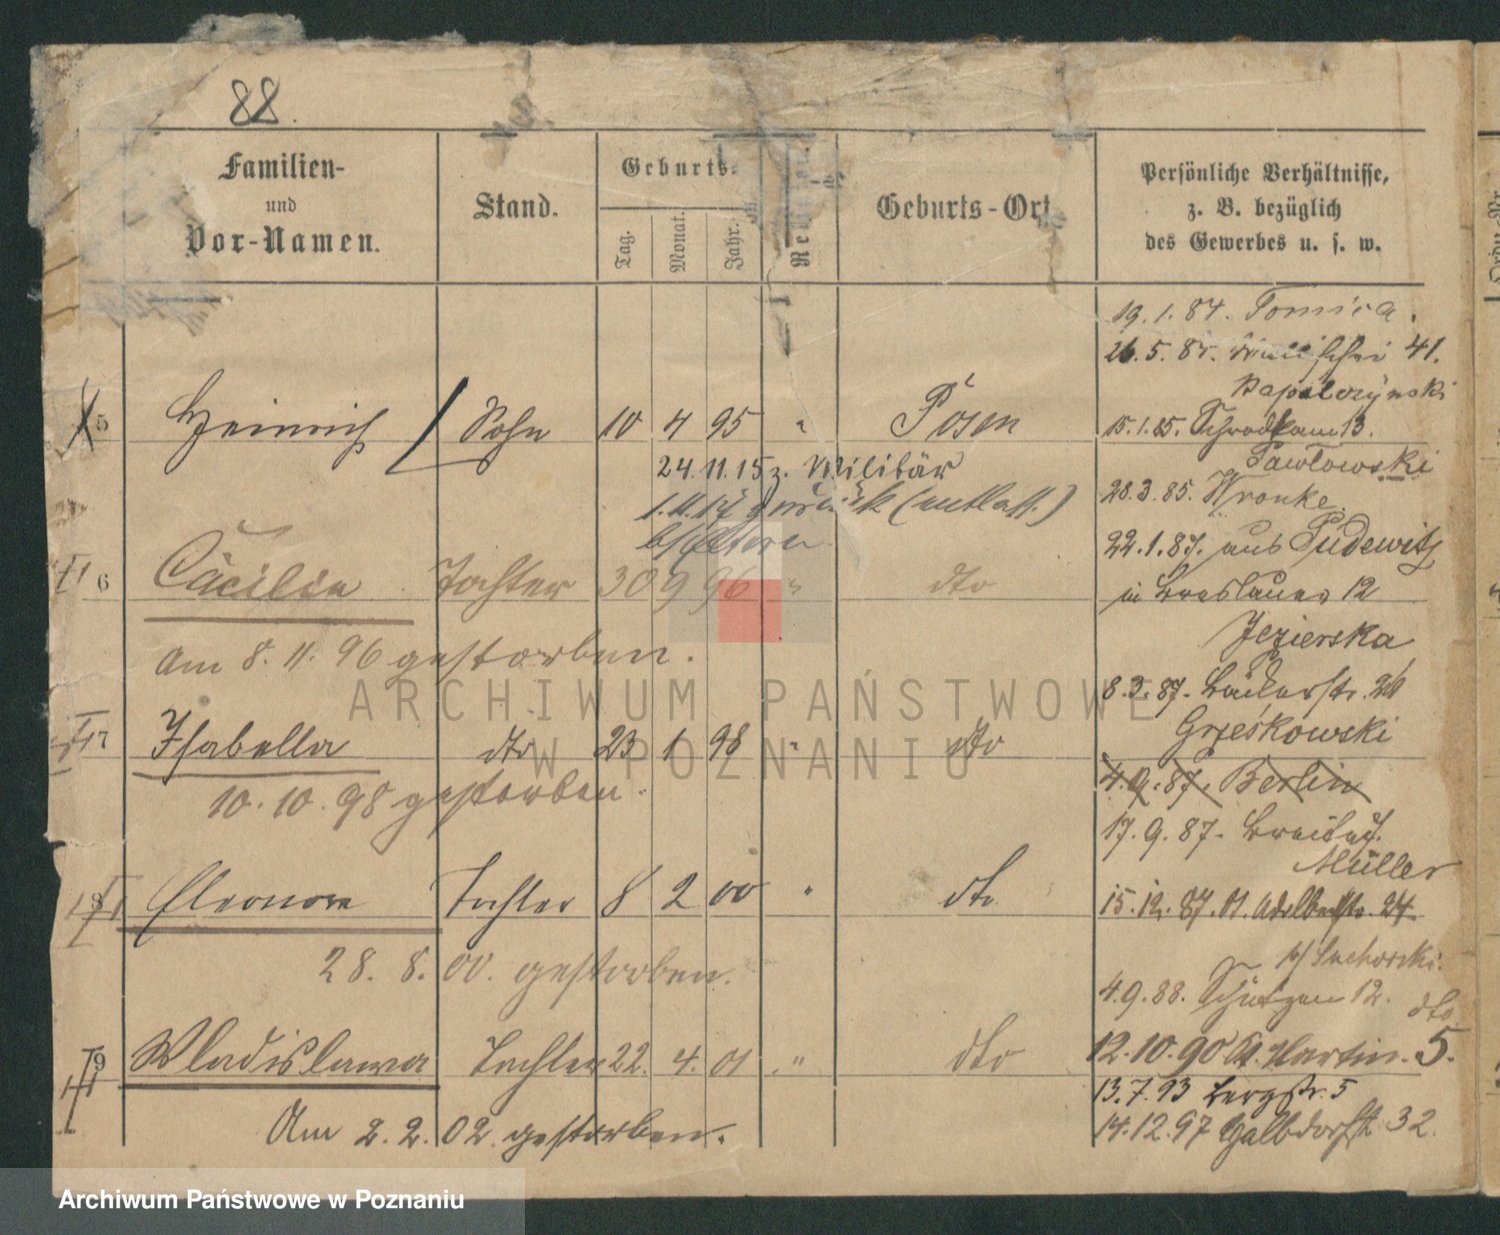 88.
Familien-
und
Vor-Namen.
Stand.
Geburts-
Tag.
Monat.
Jahr.
Geburts-Ort
Persönliche Verhältnisse,
z. B. bezüglich
des Gewerbes u. s. w.
19.1.84. Tomica.
26.5.84. Wallischei 41.
Kapalczynski
5 Heinrich Sohn 10 4 95 " Posen
15.1.85. Schrodkam 13.
24.11.15 z. Militär
Pawlowski
1.11.17 zurück (entlass.)
28.3.85. Wronke.
b/Eltern
22.1.87. aus Pudewitz
6 Cäcilia Tochter 30 9 96 " dto
in Breslauer 12
Jezierska
am 8.11.96 gestorben.
8.3.87. Bäckerstr. 26
7 Isabella dto 23 1 98 " dto
Grzeskowski
4.9.87. Berlin
10.10.98 gestorben.
17.9.87.
Müller
8 Eleonore Tochter 8 2 00 " dto
15.12.87. St. Adalbertstr. 24
28.8.00. gestorben.
b/Suchorski.
4.9.88. Schützen 12.
dto.
9 Wladislawa Tochter 22. 4. 01. " dto
12.10.90 St. Martin. 5.
13.7.93 Bergstr. 5
Am 2.2.02. gestorben.
14.12.97 Halbdorfstr. 32.
ARCHIWUM PAŃSTWOWE
W POZNANIU
Archiwum Państwowe w Poznaniu